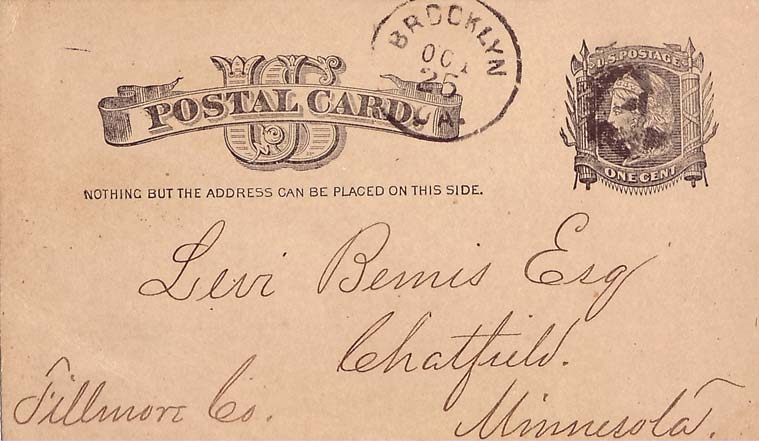 BROOKLYN
OCT
25
IA.
US
POSTAL CARD.
U.S. POSTAGE
ONE CENT
NOTHING BUT THE ADDRESS CAN BE PLACED ON THIS SIDE.
Levi Bemis Esq
Chatfield.
Fillmore Co. Minnesota.